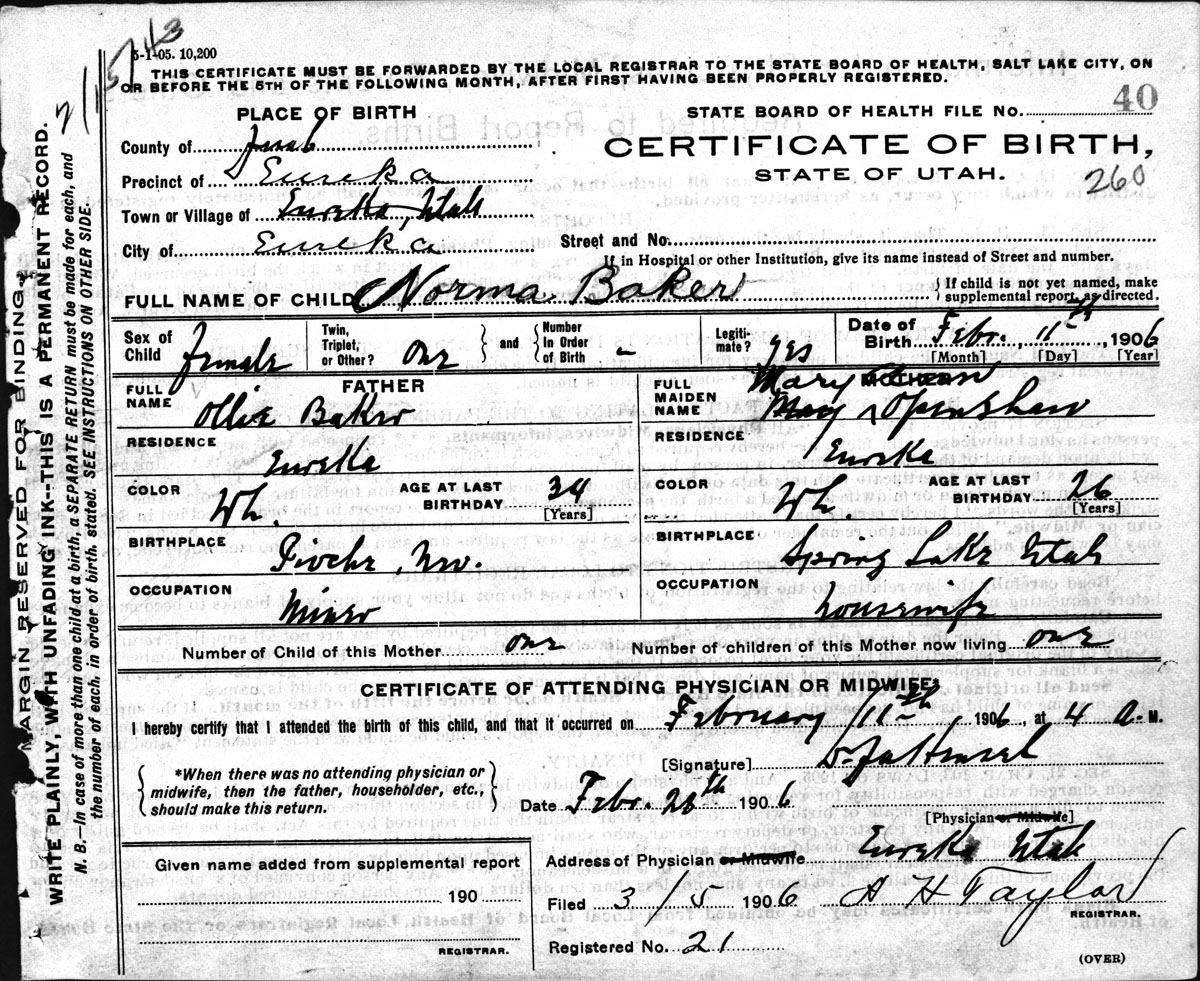 5-1-05. 10,200
THIS CERTIFICATE MUST BE FORWARDED BY THE LOCAL REGISTRAR TO THE STATE BOARD OF HEALTH, SALT LAKE CITY, ON
OR BEFORE THE 5TH OF THE FOLLOWING MONTH, AFTER FIRST HAVING BEEN PROPERLY REGISTERED.
MARGIN RESERVED FOR BINDING.
WRITE PLAINLY, WITH UNFADING INK--THIS IS A PERMANENT RECORD.
N. B.--In case of more than one child at a birth, a SEPARATE RETURN must be made for each, and
the number of each, in order of birth, stated. SEE INSTRUCTIONS ON OTHER SIDE.
PLACE OF BIRTH
County of Juab
Precinct of Eureka
Town or Village of Eureka, Utah
City of Eureka
STATE BOARD OF HEALTH FILE NO. 40
CERTIFICATE OF BIRTH,
STATE OF UTAH.
260
Street and No.
If in Hospital or other Institution, give its name instead of Street and number.
FULL NAME OF CHILD Norma Baker
If child is not yet named, make
supplemental report, as directed.
Sex of Child female
Twin, Triplet, or Other? one
and
Number In Order of Birth -
Legiti-mate? yes
Date of Birth Febr. 11th, 1906
[Month] [Day] [Year]
FATHER
FULL NAME Ollie Baker
RESIDENCE Eureka
COLOR Wh.
AGE AT LAST BIRTHDAY 34
[Years]
BIRTHPLACE Pioche, Nev.
OCCUPATION Miner
MOTHER
FULL MAIDEN NAME Mary
May Openshaw
RESIDENCE Eureka
COLOR Wh.
AGE AT LAST BIRTHDAY 26
[Years]
BIRTHPLACE Spring Lake Utah
OCCUPATION housewife
Number of Child of this Mother one
Number of children of this Mother now living one
CERTIFICATE OF ATTENDING PHYSICIAN OR MIDWIFE*
I hereby certify that I attended the birth of this child, and that it occurred on February 11th, 1906, at 4 A. M.
[Signature]
*When there was no attending physician or
midwife, then the father, householder, etc.,
should make this return.
Date Febr. 28th 1906
[Physician or Midwife]
Given name added from supplemental report
190
REGISTRAR.
Address of Physician or Midwife Eureka Utah
Filed 3/5 1906 A H Taylor
REGISTRAR.
Registered No. 21
(OVER)